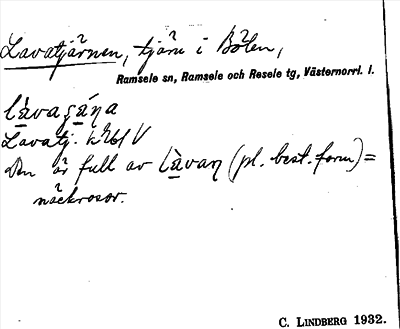 Lavatjärnen, tjärn i Bölen,
Ramsele sn, Ramsele och Resele tg, Västernorrl. l.
Lavatj.
Den är full av làvaɳ (pl. best. form) =
näckrosor.
C. LINDBERG 1932.